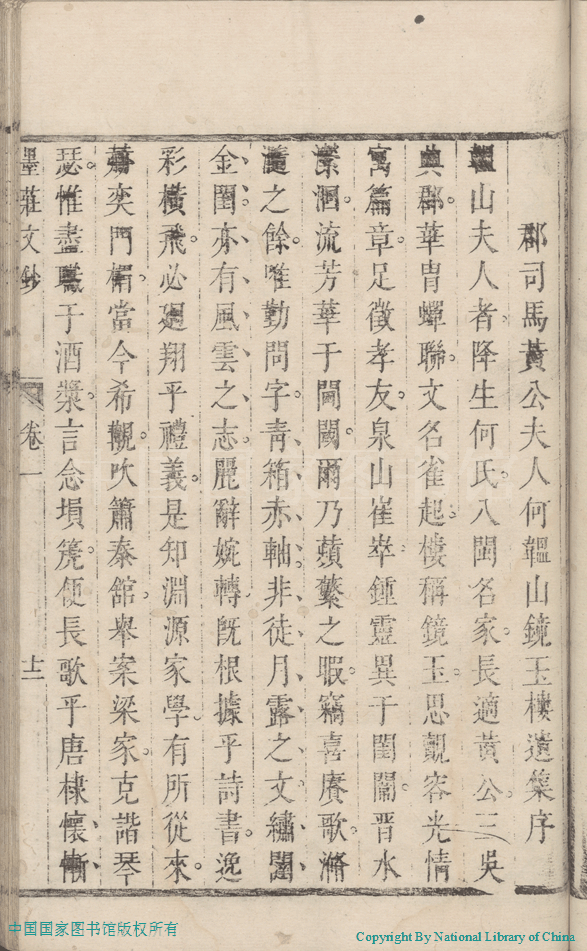 郡司馬黃公夫人何韞山鏡玉樓遺集序
韞山夫人者降生何氏八閩名家長適黃公三吳
典郡華胄蟬聯文名雀起樓稱鏡玉思覿容光情
寓篇章足徵孝友泉山崔崒鍾靈異于閨闥晉水
瀠洄流芳華于閫閾爾乃蘋蘩之暇竊喜賡歌滫
瀡之餘唯勤問字青箱赤軸非徒月露之文繡闥
金閨亦有風雲之志麗辭婉轉旣根據乎詩書逸
彩橫飛必廻翔乎禮義是知淵源家學有所從來
蕭奕門楣當今希覯吹簫秦館舉案梁家克諧琴
瑟惟盡驩于酒漿言念塤箎便長歌乎唐棣懷慚
墨莊文鈔 卷一 十二
中国国家图书馆版权所有
Copyright By National Library of China